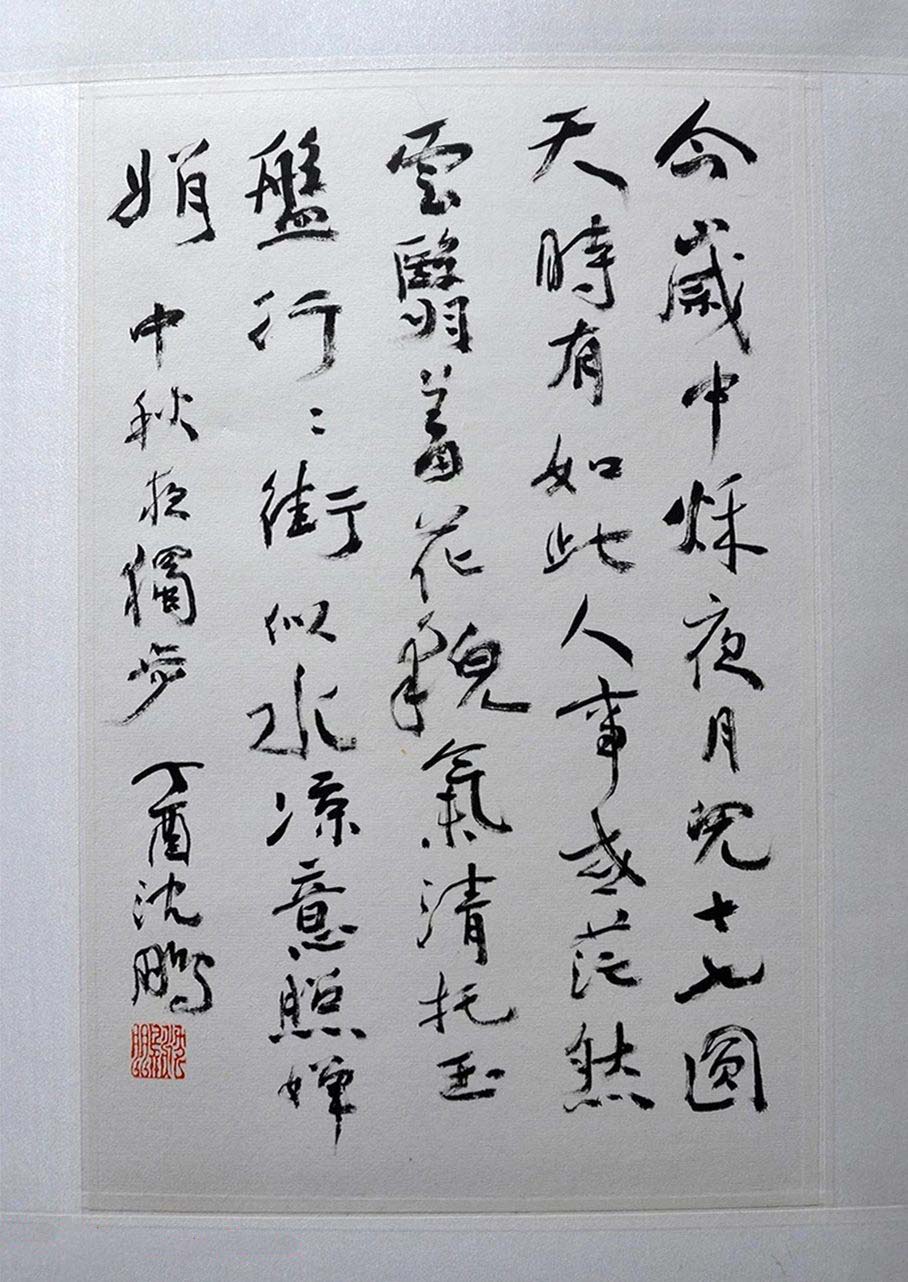 今歲中秌夜月兒十七圓
天時有如此人事感茫然
雲翳羞花貌氣清托玉
盤行〻街似水凉意照嬋
娟 中秋夜獨步 丁酉沈鵬
沈鵬